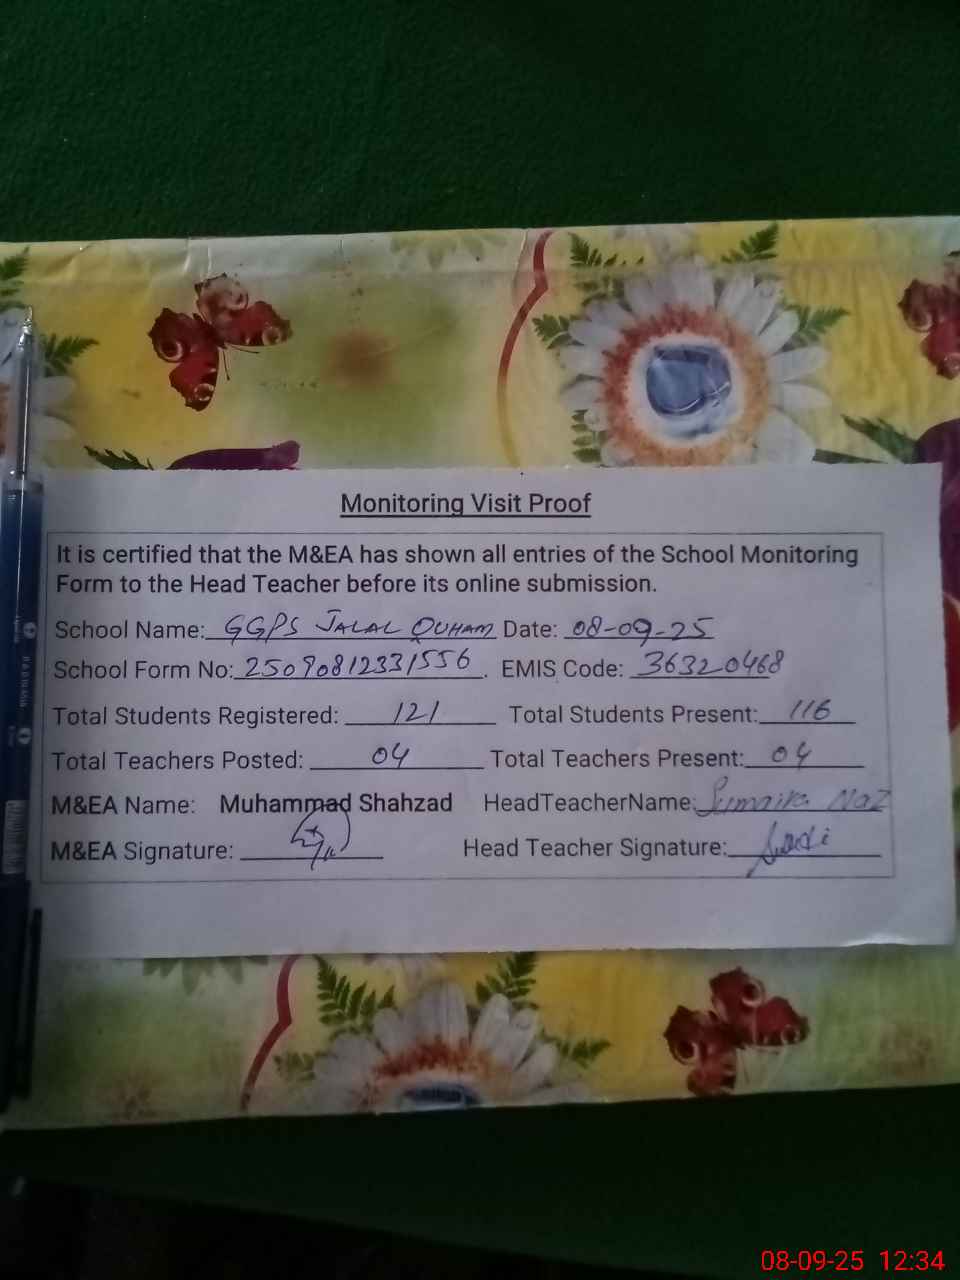 Monitoring Visit Proof
It is certified that the M&EA has shown all entries of the School Monitoring
Form to the Head Teacher before its online submission.
School Name: GGPS JALAL QUHAM Date: 08-09-25
School Form No: 25090812331556. EMIS Code: 36320468
Total Students Registered: 121 Total Students Present: 116
Total Teachers Posted: 04 Total Teachers Present: 04
M&EA Name: Muhammad Shahzad HeadTeacherName: Sumaira Naz
M&EA Signature: Head Teacher Signature:
08-09-25 12:34